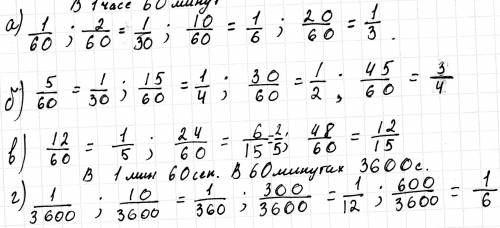 В 1 часе 60 минут
а) 1/60 ; 2/60 = 1/30 ; 10/60 = 1/6 ; 20/60 = 1/3 .
б) 5/60 = 1/30 ; 15/60 = 1/4 ; 30/60 = 1/2 ; 45/60 = 3/4
в) 12/60 = 1/5 ; 24/60 = 6/15 = 2/5 ; 48/60 = 12/15
В 1 мин 60 сен. В 60 минутах 3600 с.
г) 1/3600 ; 10/3600 = 1/360 ; 300/3600 = 1/12 ; 600/3600 = 1/6